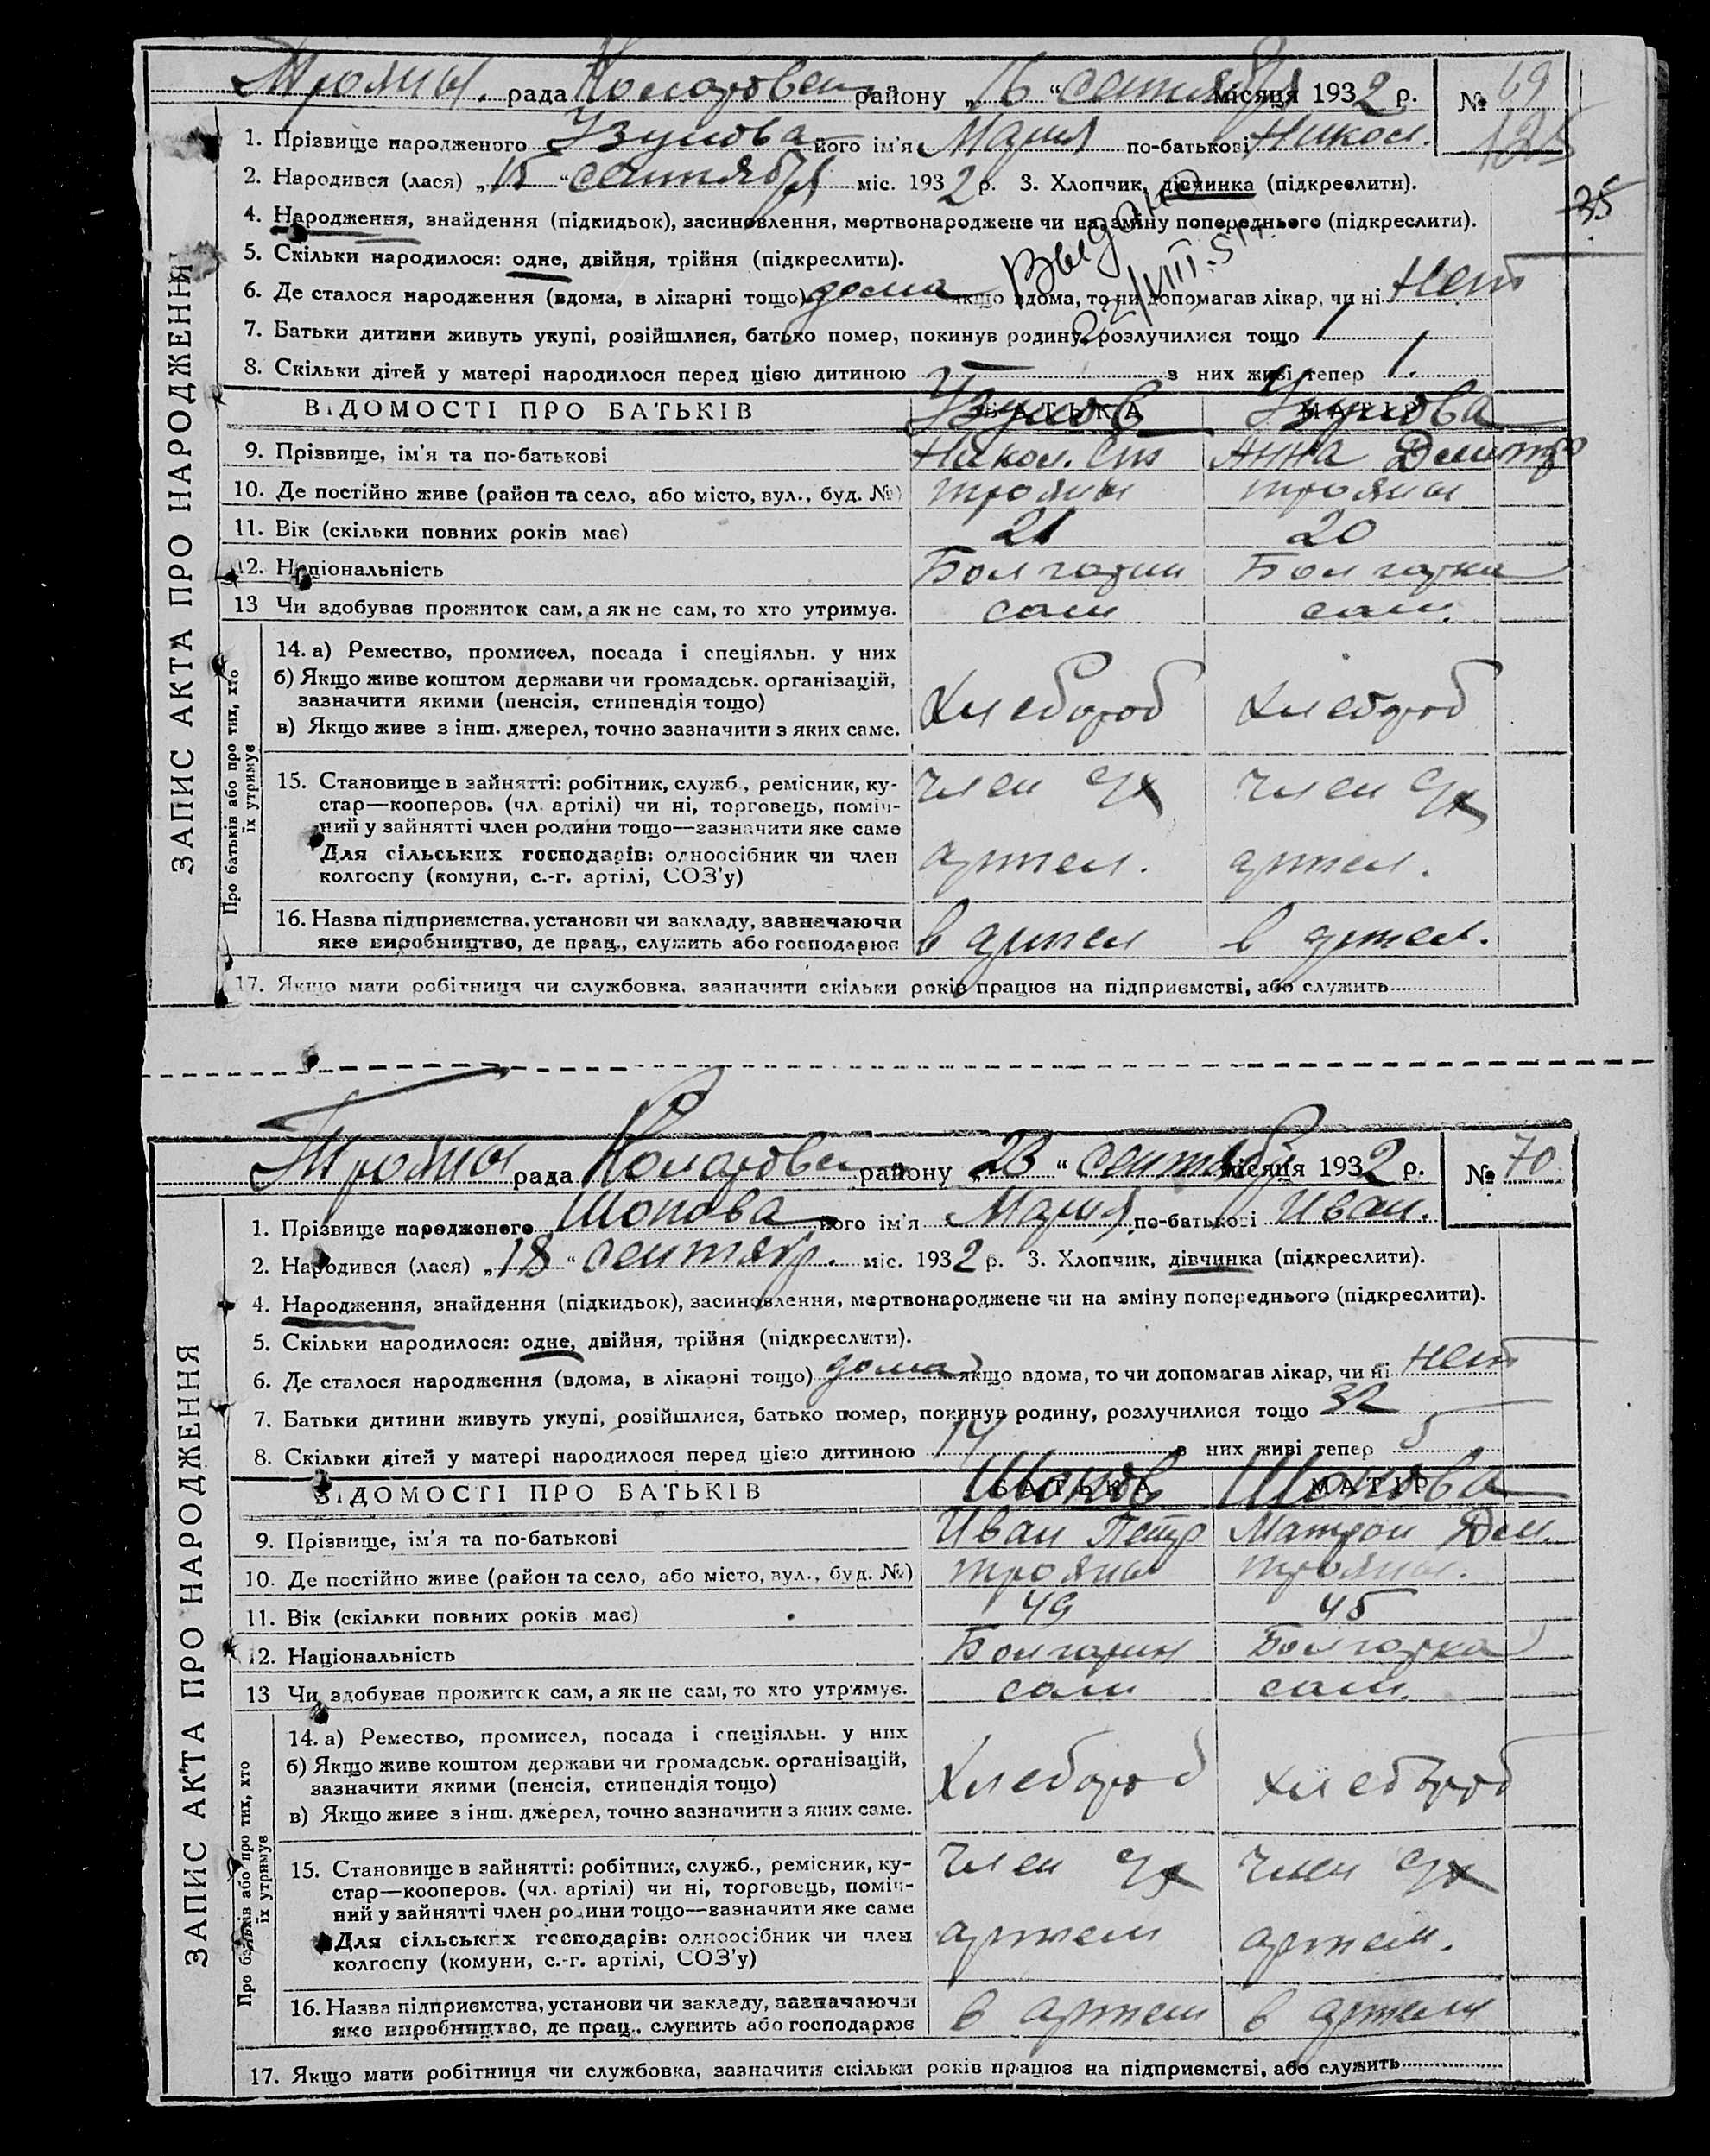 Трояны. рада Коларовск району „16“ сентября місяця 1932 р. № 69
125
35
1. Прізвище народженого Узунова його ім'я Мария по-батькові Никол.
2. Народився (лася) „15“ сентября міс. 1932 р. 3. Хлопчик, дівчинка (підкреслити).
4. Народження, знайдення (підкидьок), засиновлення, мертвонароджене чи на зміну попереднього (підкреслити).
5. Скільки народилося: одне, двійня, трійня (підкреслити).
Выдано
22/VIII.51
6. Де сталося народження (вдома, в лікарні тощо) дома якщо вдома, то чи допомагав лікар, чи ні Нет
7. Батьки дитини живуть укупі, розійшлися, батько помер, покинув родину, розлучилися тощо 1
8. Скільки дітей у матері народилося перед цією дитиною з них живі тепер 1.
ВІДОМОСТІ ПРО БАТЬКІВ БАТЬКА МАТІР
Узунов Узунова
9. Прізвище, ім'я та по-батькові Никол. Сте Анна Дмитр
10. Де постійно живе (район та село, або місто, вул., буд. №) трояны трояны
11. Вік (скільки повних років має) 21 20
12. Національність Болгарин Болгарка
13 Чи здобував прожиток сам, а як не сам, то хто утримує. сам сам.
14. а) Ремество, промисел, посада і спеціяльн. у них
б) Якщо живе коштом держави чи громадськ. організацій,
зазначити якими (пенсія, стипендія тощо) Хлебороб Хлебороб
в) Якщо живе з інш. джерел, точно зазначити з яких саме.
15. Становище в зайнятті: робітник, служб., ремісник, ку-
стар—кооперов. (чл. артілі) чи ні, торговець, поміч- член с/х член с/х
ний у зайнятті член родини тощо—зазначити яке саме
Для сільських господарів: одноосібник чи член артел. артел.
колгоспу (комуни, с.-г. артілі, СОЗ'у)
16. Назва підприємства, установи чи закладу, зазначаючи
яке виробництво, де прац., служить або господарює в артел в артел.
17. Якщо мати робітниця чи службовка, зазначити скільки років працює на підприємстві, або служить
Про батьків або про тих, хто їх утримує
ЗАПИС АКТА ПРО НАРОДЖЕННЯ
Трояны рада Коларовск району „23“ сентябр місяця 1932 р. № 70
1. Прізвище народженого Шопова його ім'я Мария по-батькові Иван.
2. Народився (лася) „18“ сентябр. міс. 1932 р. 3. Хлопчик, дівчинка (підкреслити).
4. Народження, знайдення (підкидьок), засиновлення, мертвонароджене чи на зміну попереднього (підкреслити).
5. Скільки народилося: одне, двійня, трійня (підкреслити).
6. Де сталося народження (вдома, в лікарні тощо) дома якщо вдома, то чи допомагав лікар, чи ні нет
7. Батьки дитини живуть укупі, розійшлися, батько помер, покинув родину, розлучилися тощо 32
8. Скільки дітей у матері народилося перед цією дитиною 14 з них живі тепер 5
ВІДОМОСТІ ПРО БАТЬКІВ БАТЬКА МАТІР
Шопов Шопова
9. Прізвище, ім'я та по-батькові Иван Петр Матрон Дем.
10. Де постійно живе (район та село, або місто, вул., буд. №) трояны трояны.
11. Вік (скільки повних років має) 49 45
12. Національність Болгарин Болгарка
13 Чи здобував прожиток сам, а як не сам, то хто утримує. сам сам.
14. а) Ремество, промисел, посада і спеціяльн. у них
б) Якщо живе коштом держави чи громадськ. організацій,
зазначити якими (пенсія, стипендія тощо) Хлебороб хлебороб
в) Якщо живе з інш. джерел, точно зазначити з яких саме.
15. Становище в зайнятті: робітник, служб., ремісник, ку- член с/х член с/х
стар—кооперов. (чл. артілі) чи ні, торговець, поміч-
ний у зайнятті член родини тощо—зазначити яке саме
Для сільських господарів: одноосібник чи член артели артел.
колгоспу (комуни, с.-г. артілі, СОЗ'у)
16. Назва підприємства, установи чи закладу, зазначаючи
яке виробництво, де прац., служить або господарює в артели в артели
17. Якщо мати робітниця чи службовка, зазначити скільки років працює на підприємстві, або служить
Про батьків або про тих, хто їх утримує
ЗАПИС АКТА ПРО НАРОДЖЕННЯ